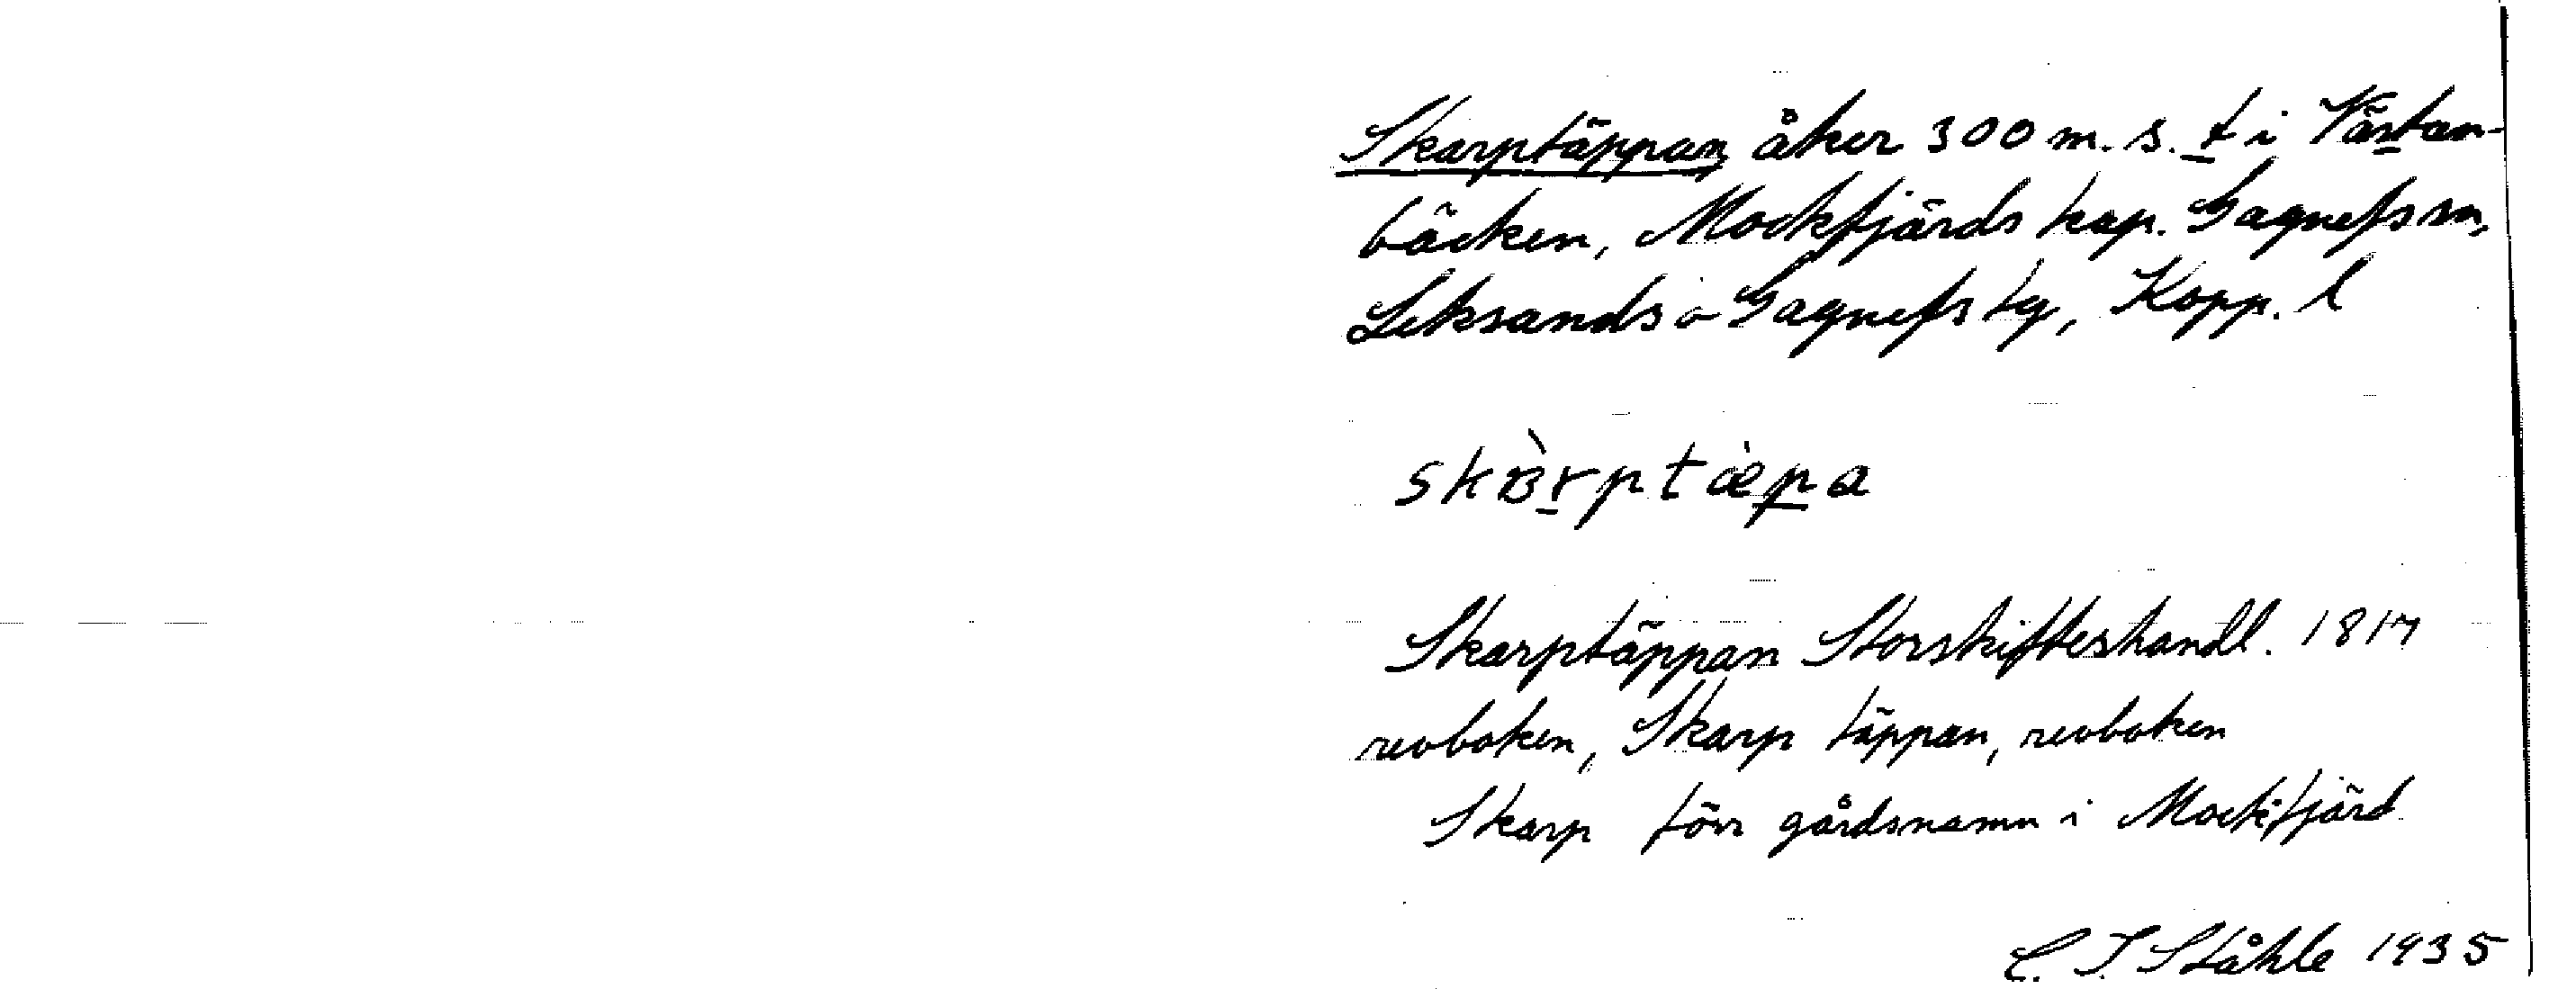 Skarptäppan, åker 300 m. s. t i Västan-
bäcken, Mockfjärds kap. Gagnefs sn,
Leksands o Gagnefs tg, Kopp. l
skɒ̀rptæ̀pa
Skarptäppan Storskifteshandl. 1817
revboken, Skarp täppan, revboken
Skarp förr gårdsnamn i Mockfjärd
C. I. Ståhle 1935